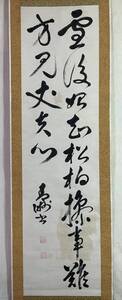 雪後始知松柏操事難
方見丈夫心